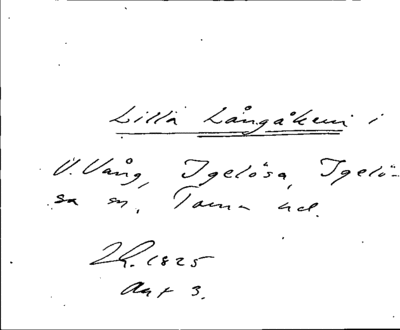 Lilla Långåkern i
V. Vång, Igelösa, Igelö-
sa sn, Torna hd.
LR. 1825
Akt 3.